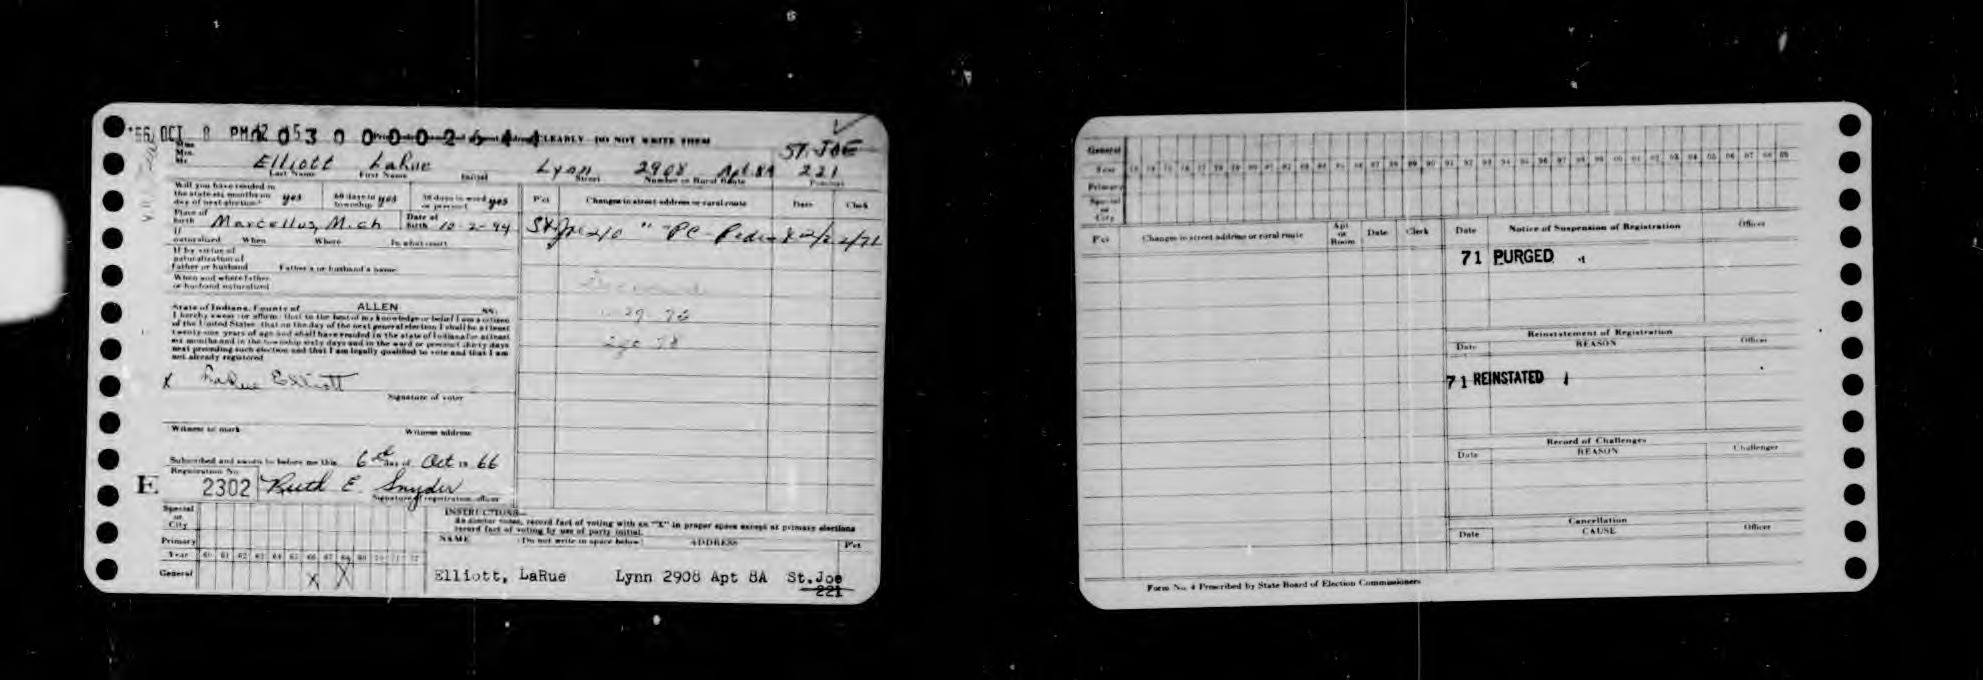 '66 OCT 8 PM 12 05
0 3 0 0 0 0 2 6 4 4
CLEARLY DO NOT WRITE THEM
ST. JOE
Miss
Mrs.
Mr.
Elliott LaRue Lynn 2908 Apt. 8A 221
Last Name First Name Initial Street Number or Rural Route Precinct
Will you have resided in
the state six months on
day of next election? yes 60 days in township yes 30 days in ward or precinct yes
P'ct Changes in street address or rural route Date Clerk
Place of birth Marcellus, Mich Date of birth 10-2-94
St Joe 210 " " PC-
If naturalized When Where In what court
If by virtue of
naturalization of
Father or husband Father's or husband's name
When and where father
or husband naturalized
State of Indiana, County of ALLEN SS:
I hereby swear (or affirm) that to the best of my knowledge or belief I am a citizen
of the United States; that on the day of the next general election I shall be at least
twenty-one years of age and shall have resided in the state of Indiana for at least
six months and in the township sixty days and in the ward or precinct thirty days
next preceding such election and that I am legally qualified to vote and that I am
not already registered
Deceased
29 73
age 78
X LaRue Elliott
Signature of voter
Witness to mark Witness address
Subscribed and sworn to before me this 6th day of Oct 19 66
Registration No.
E 2302 Ruth E. Snyder
Signature of registration officer
Special
or
City
Primary
Year 60 61 62 63 64 65 66 67 68 69 70 71 72
General X X
INSTRUCTIONS
As elector votes, record fact of voting with an "X" in proper space except at primary elections
record fact of voting by use of party initial.
NAME (Do not write in space below) ADDRESS P'ct
Elliott, LaRue Lynn 2908 Apt 8A St.Joe
221
General
Year 73 74 75 76 77 78 79 80 81 82 83 84 85 86 87 88 89 90 91 92 93 94 95 96 97 98 99 00 01 02 03 04 05 06 07 08 09
Primary
Special
or
City
P'ct Changes in street address or rural route Apt. or Room Date Clerk
Date Notice of Suspension of Registration Officer
71 PURGED
Reinstatement of Registration
Date REASON Officer
71 REINSTATED
Record of Challenges
Date REASON Challenger
Cancellation
Date CAUSE Officer
Form No. 4 Prescribed by State Board of Election Commissioners